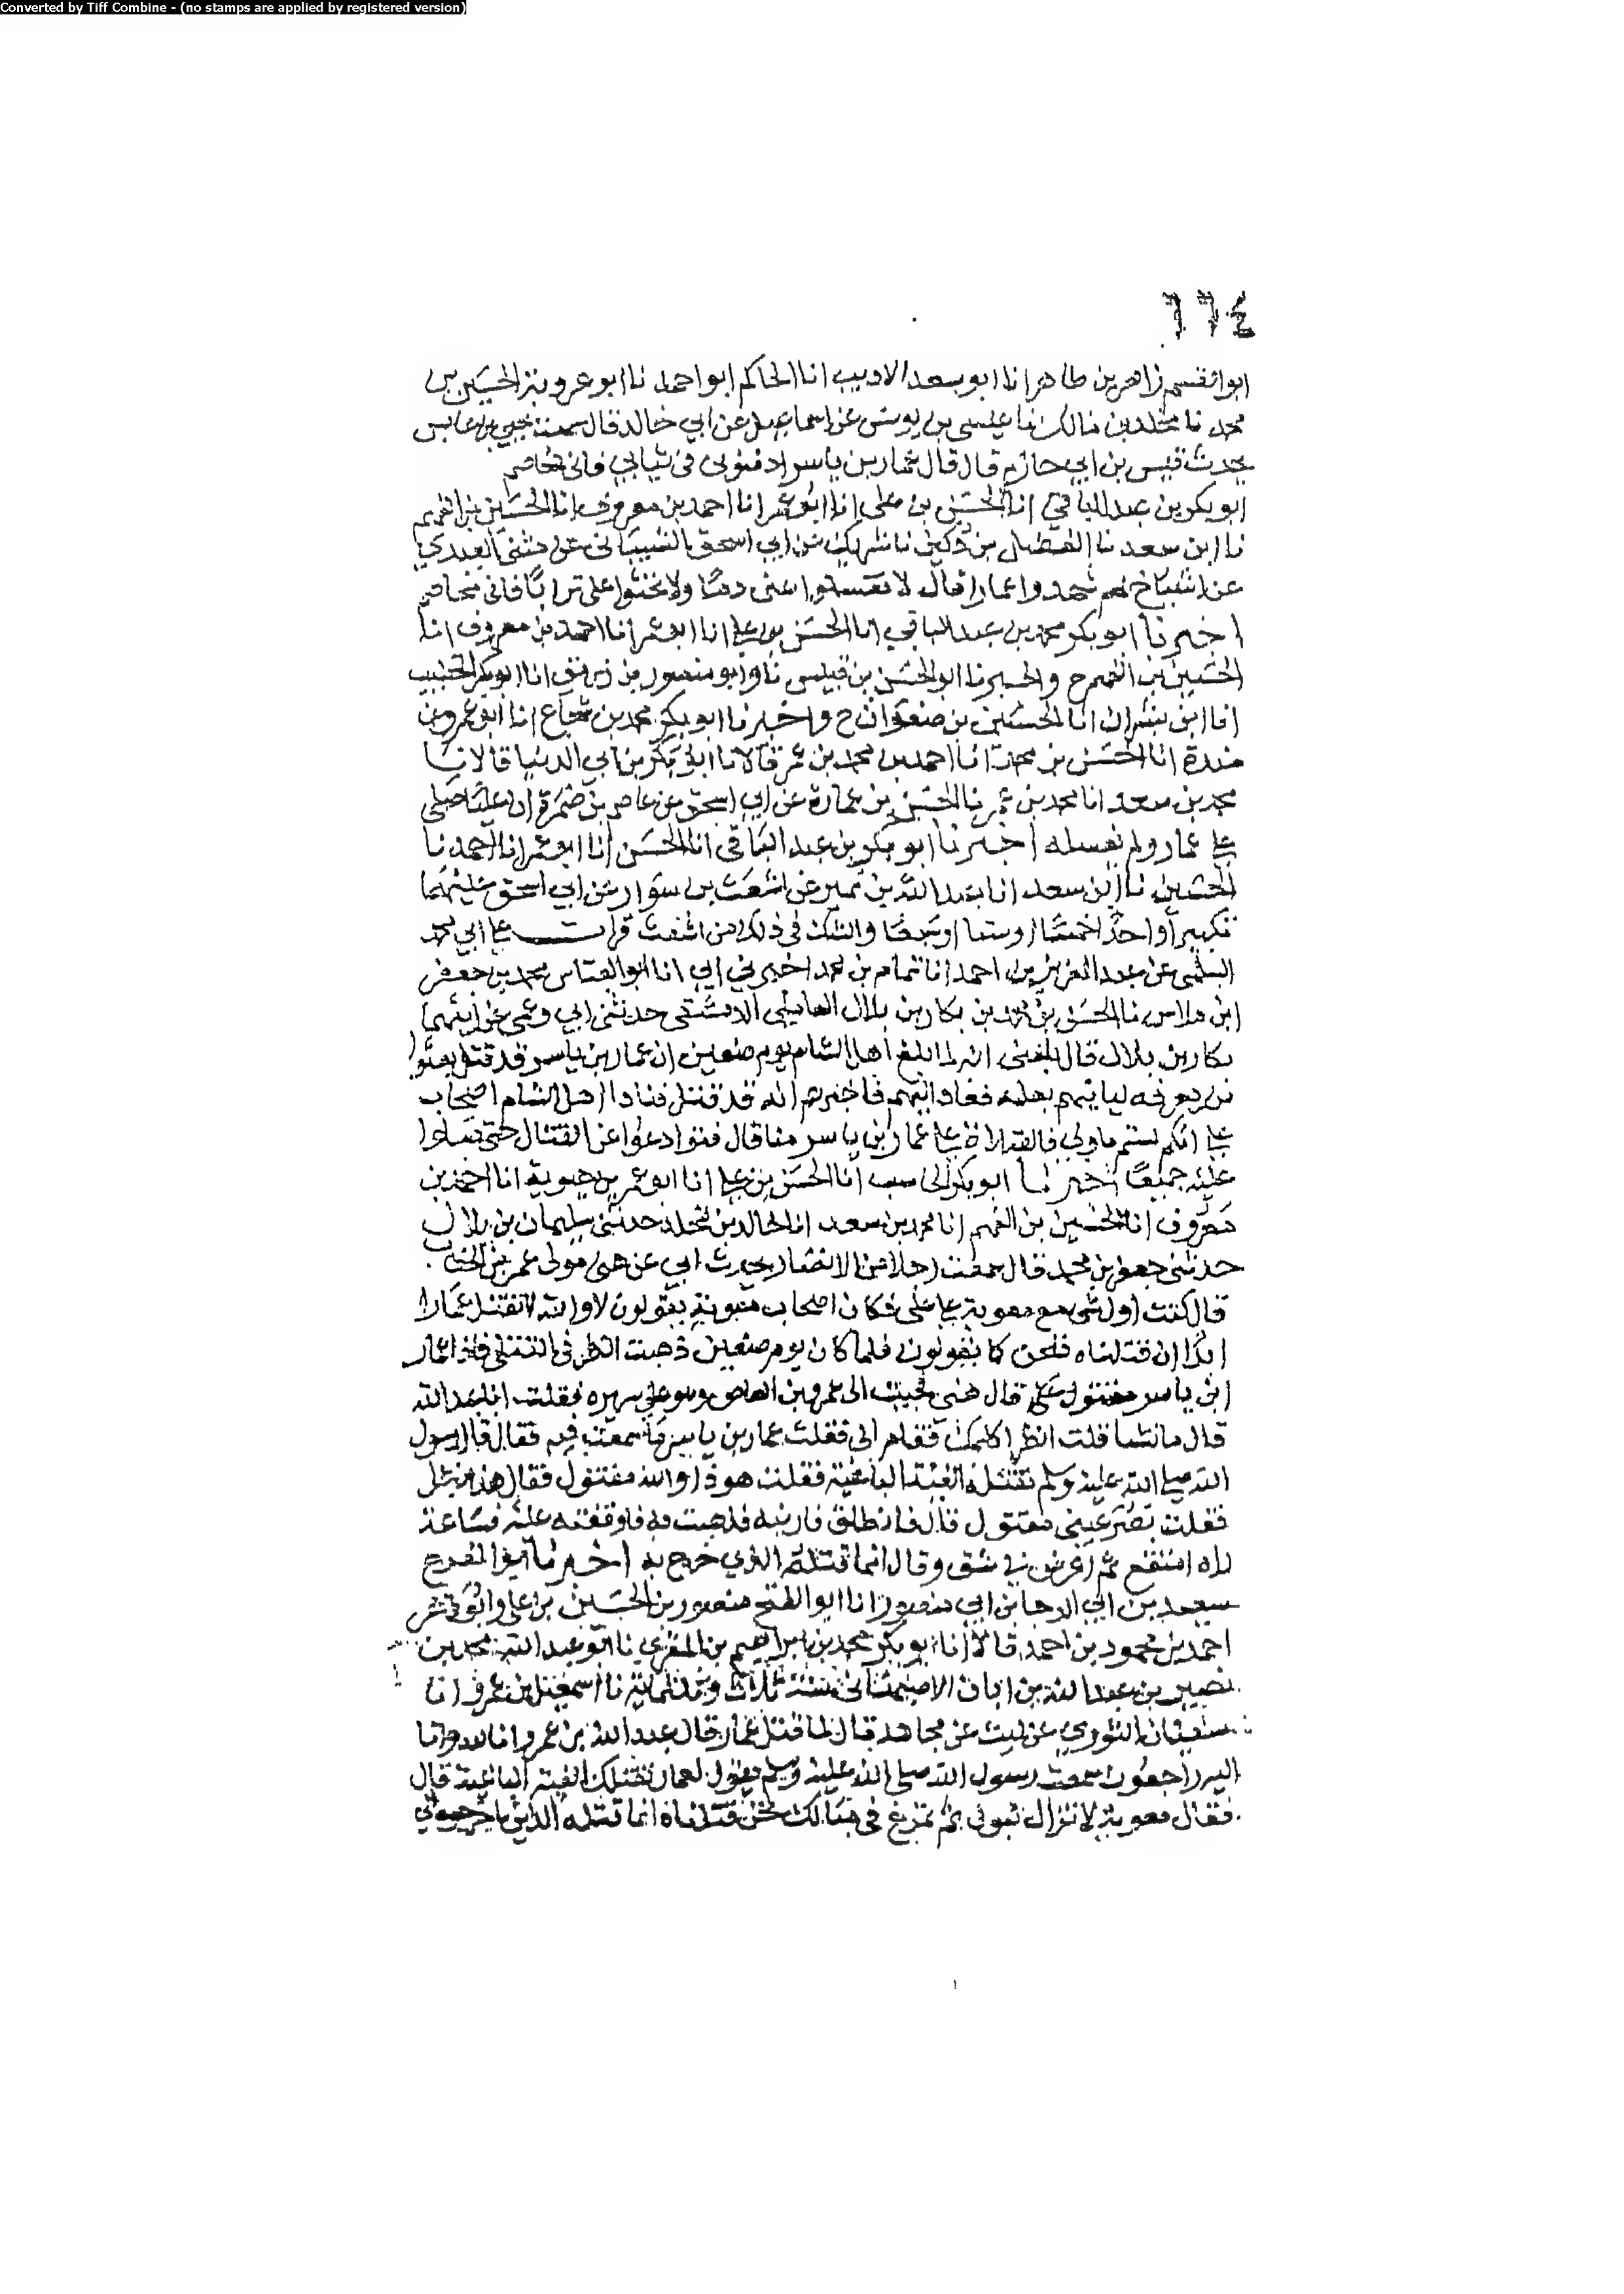 Converted by Tiff Combine - (no stamps are applied by registered version)
٦٦٤
ابو القسم زاهر بن طاهر انا ابو سعد الاديب انا الحاكم ابو احمد نا ابو عروبة الحسين بن
محمد نا مخلد بن مالك نا عيسى بن يونس عن اسماعيل عن ابي خالد قال سمعت يحيى بن عابس
يحدث قيس بن ابي حازم قال قال عمار بن ياسر ادفنوني في ثيابي فاني مخاصم
ابو بكر بن عبد الباقي انا الحسن بن علي انا ابو عمر انا احمد بن معروف انا الحسين بن الفهم
نا ابن سعد نا الفضل بن دكين نا شريك عن ابي اسحق الشيباني عن مثنى العبدي
عن اشياخ لهم شهدوا عمارا قال لا تغسلوا عني دما ولا تحثوا علي ترابا فاني مخاصم
اخبرنا ابو بكر محمد بن عبد الباقي انا الحسن بن علي انا ابو عمر انا احمد بن معروف انا
الحسين بن الفهم ح واخبرنا ابو الحسن بن قبيس نا وابو منصور بن زريق انا ابو بكر الخطيب
انا ابن بشران انا الحسين بن صفوان ح واخبرنا ابو بكر محمد بن شجاع انا ابو عمرو بن
مندة انا الحسن بن محمد انا احمد بن محمد بن عمر قالا نا ابو بكر بن ابي الدنيا قالا نا
محمد بن سعد انا محمد بن عمر نا الحسن بن عمارة عن ابي اسحق عن عاصم بن ضمرة ان عليا صلى
على عمار ولم يغسله اخبرنا ابو بكر بن عبد الباقي انا الحسن انا ابو عمر انا احمد نا
الحسين نا ابن سعد انا عبد الله بن نمير عن اشعث بن سوار عن ابي اسحق عليهما
تكبيرا واحدا خمسا او ستا او سبعا والشك في ذلك من اشعث قرات على ابي محمد
السلمي عن عبد العزيز بن احمد انا تمام بن محمد اخبرني ابي انا ابو العباس محمد بن جعفر
ابن ملاس نا الحسن بن محمد بن بكار بن بلال العاملي الدمشقي حدثني ابي وعمي عن ابيهما
بكار بن بلال قال بلغني انه لما بلغ اهل الشام يوم صفين ان عمار بن ياسر قد قتل بعثوا
من يعرفه لياتيهم بعلمه فعاد اليهم فاخبرهم انه قد قتل فنادا اهل الشام اصحاب
علي انكم لستم باولى بالصلاة على عمار بن ياسر منا قال فتوادعوا عن القتال حتى صلوا
عليه جميعا اخبرنا ابو بكر الحاسب انا الحسن بن علي انا ابو عمر بن حيوية انا احمد بن
معروف انا الحسين بن الفهم انا محمد بن سعد انا خالد بن مخلد حدثني سليمان بن بلال
حدثني جعفر بن محمد قال سمعت رجلا من الانصار يحدث ابي عن هني مولى عمر بن الخطاب
قال كنت اول شي مع معوية على علي فكان اصحاب معوية يقولون لا والله لا نقتل عمارا
ابدا ان قتلناه فنحن كما يقولون فلما كان يوم صفين ذهبت انظر في القتلى فاذا عمار
ابن ياسر مقتول قال هني فجيت الى عمرو بن العاص وهو على سريره فقلت ابا عبد الله
قال ما تشا قلت انظر اكلمك فقام الي فقلت عمار بن ياسر ما سمعت فيه فقال قال رسول
الله صلى الله عليه وسلم تقتله الفئة الباغية فقلت هو ذا والله مقتول فقال هذا باطل
فقلت بصر عيني مقتول قال فانطلق فارنيه فذهبت به فاوقفته عليه فساعة
راه امتقع ثم اعرض في شق وقال انما قتله الذي خرج به اخبرنا ابو الفرج
سعيد بن ابي الرجا بن ابي منصور انا ابو الفتح منصور بن الحسين بن علي وابو طاهر
احمد بن محمود بن احمد قالا انا ابو بكر محمد بن ابراهيم بن المقري نا ابو عبد الله محمد بن
نصير بن عبد الله بن ابان الاصبهاني سنة ثلاث وثلثمائة نا اسمعيل بن عمرو انا
سفيان الثوري عن ليث عن مجاهد قال لما قتل عمار قال عبد الله بن عمرو انا لله وانا
اليه راجعون سمعت رسول الله صلى الله عليه وسلم يقول لعمار تقتلك الفئة الباغية قال
فقال معوية لا تزال تبول ثم تمرغ في مبالك نحن قتلناه انما قتله الذين اخرجوه